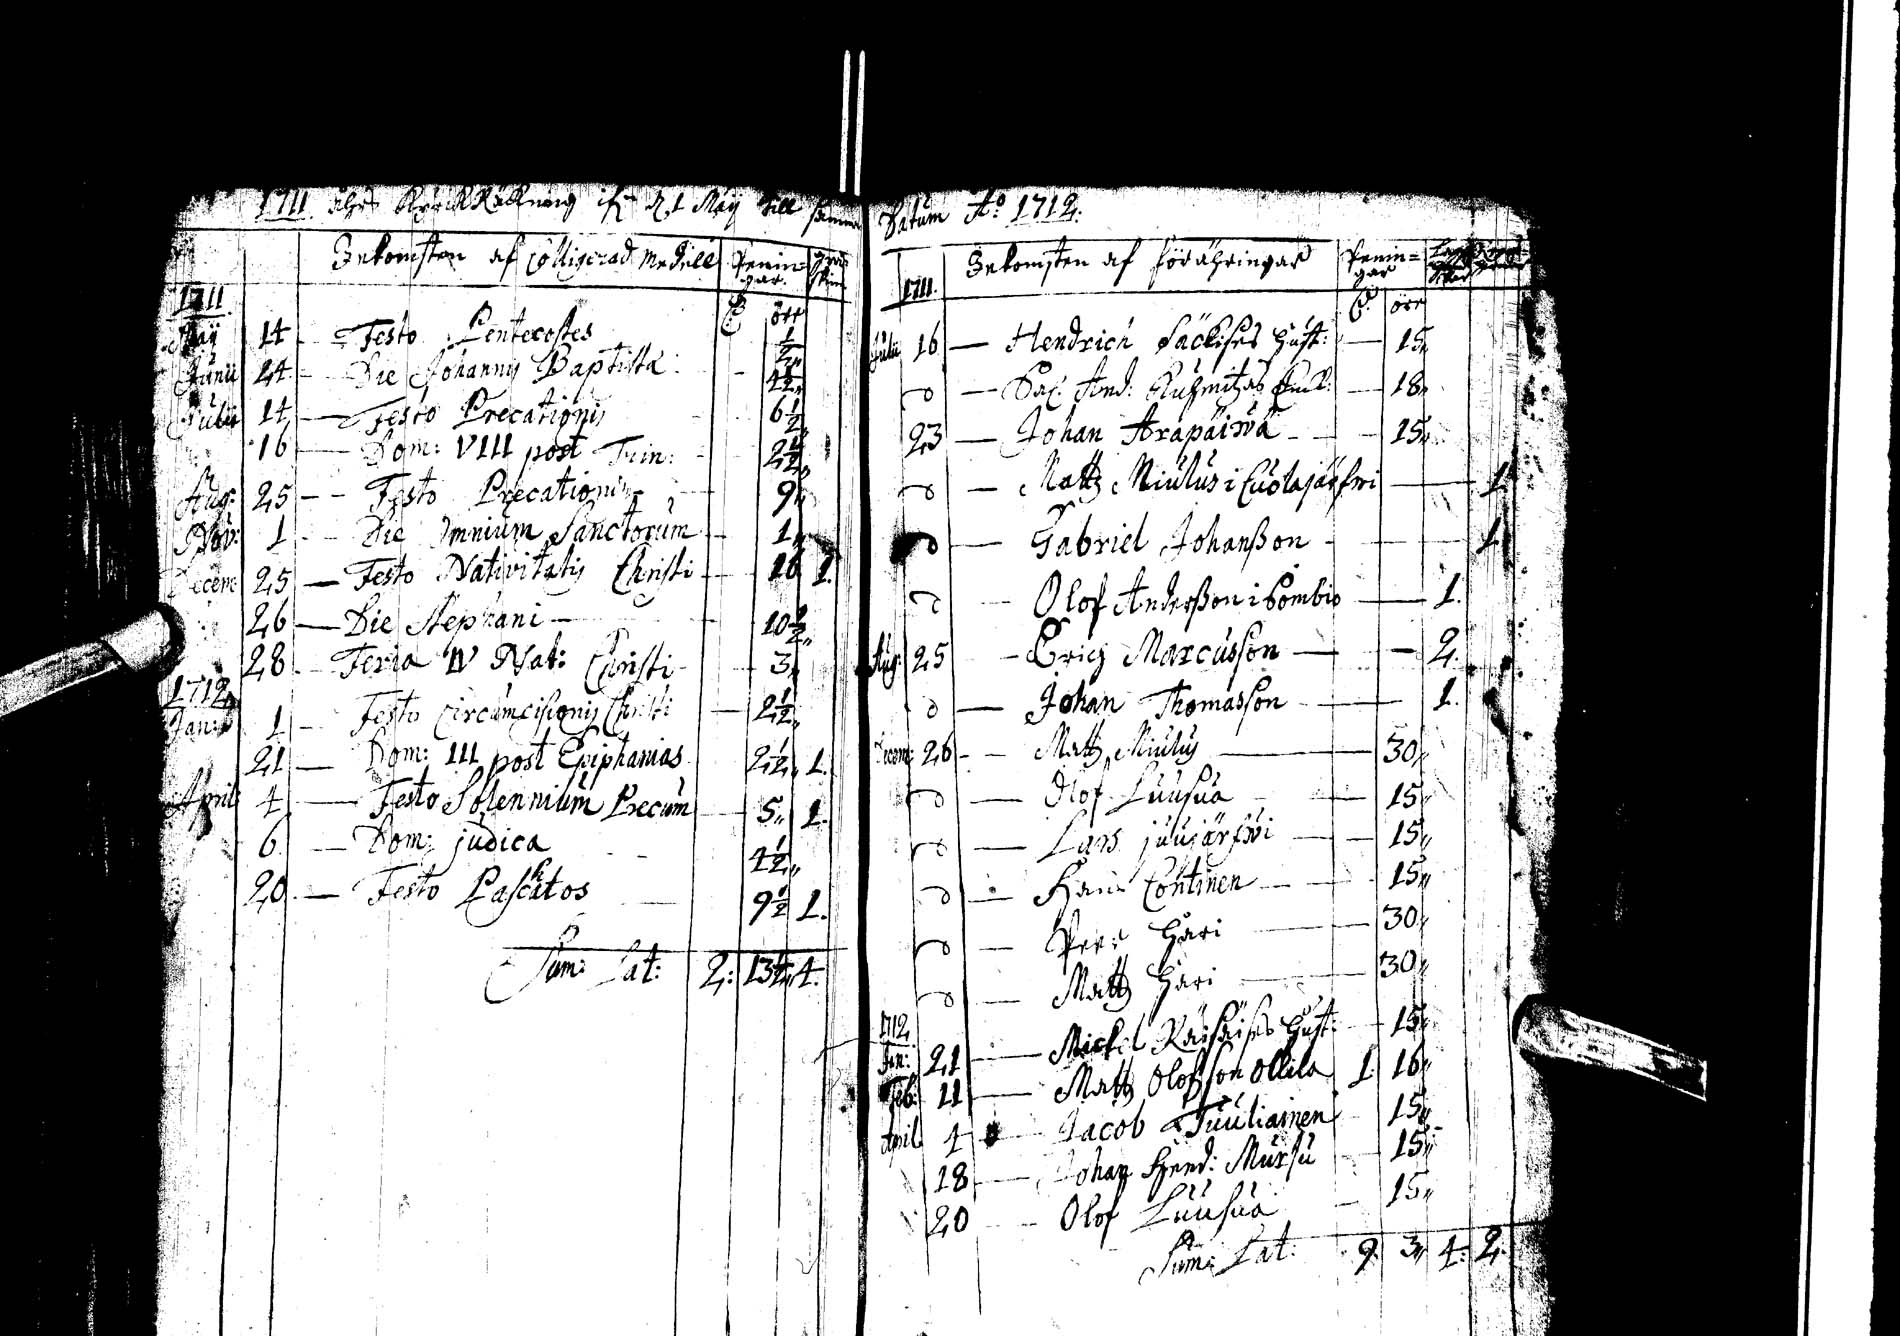 1711 åhrs Kyrck Räkning ifr: d. 1 Maij till samma
Inkomsten af Colligerad Medell Penin= gar.
1711 öre
Maij 14 — Festo Pentecostes ½
Junii 24 — Die Johannis Baptistæ 4½
Julii 14 — Festo Precationis 6½
16 — Dom: VIII post Trin: 2½
Aug: 25 — Festo Precationis 9
Nov: 1 — Die Omnium Sanctorum 1
Decem 25 — Festo Nativitatis Christi 10 1.
26 — Die Stephani 10½
28 — Feria IV Nat: Christi 3
1712
Jan: 1 — Festo Circumcisionis Christi 2½
21 — Dom: III post Epiphanias 2½ 1.
April 4 — Festo Solennium Precum 5 1.
6 — Dom: judica 4½
20 — Festo Paschatos 9½ 1.
Sum: Lat: 2: 13½ 4.
Datum Ao: 1712.
1711. Inkomsten af Förähringar Penin= gar
öre
Julii 16 — Hendrich Säckises Hust: — 15
d — And: 18
23 — Johan Arapäiwä — 15
d — Matts Miulus i Cuolajärfwi — 1
d — Gabriel Johansson — 1
d — Olof Andersson i Sombio — 1.
Aug: 25 — Erich Marcusson — 2.
d — Johan Thomasson — 1.
Decem: 26 — Matts Miulus — 30
d — Olof Luusua — 15
d — Lars juujärfwi — 15
d — Hans Continen — 15
d — Peer Hari — 30
d — Matts Hari — 30
1712
Jan: 21 — Mickel Räisäises Hust: — 15
Feb: 11 — Matts Olofsson Ollila 1. 16
April 4 — Jacob Tuuliainen 15
18 — Johan Hend: Mursu 15
20 — Olof Luusua — 15
Sum: Lat: 9. 3 4: 2.